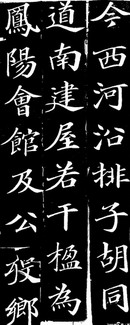 今西河沿排子胡同
道南建屋若干楹為
鳳陽會館及公歿鄉